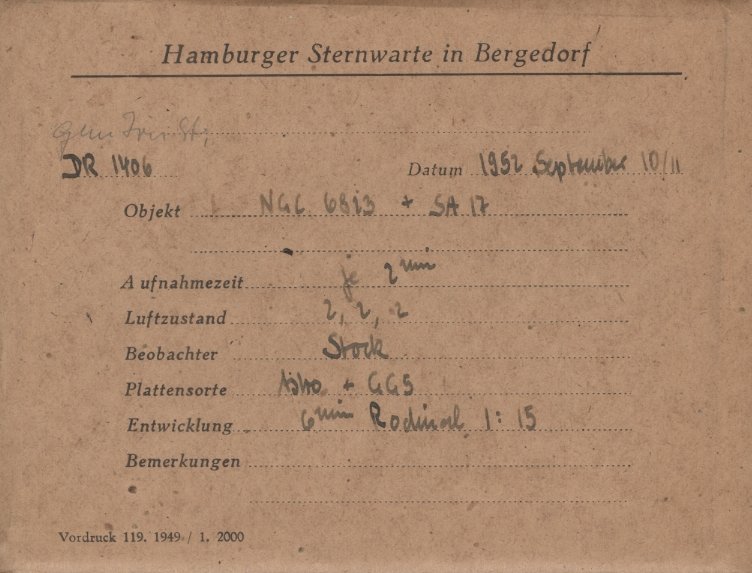 Hamburger Sternwarte in Bergedorf
DR 1406 Datum 1952 September 10/11
Objekt NGC 6823 + SA 17
Aufnahmezeit je 2 min
Luftzustand 2, 2, 2
Beobachter Stock
Plattensorte Astro + GG5
Entwicklung 6 min Rodinal 1:15
Bemerkungen
Vordruck 119. 1949 / 1. 2000